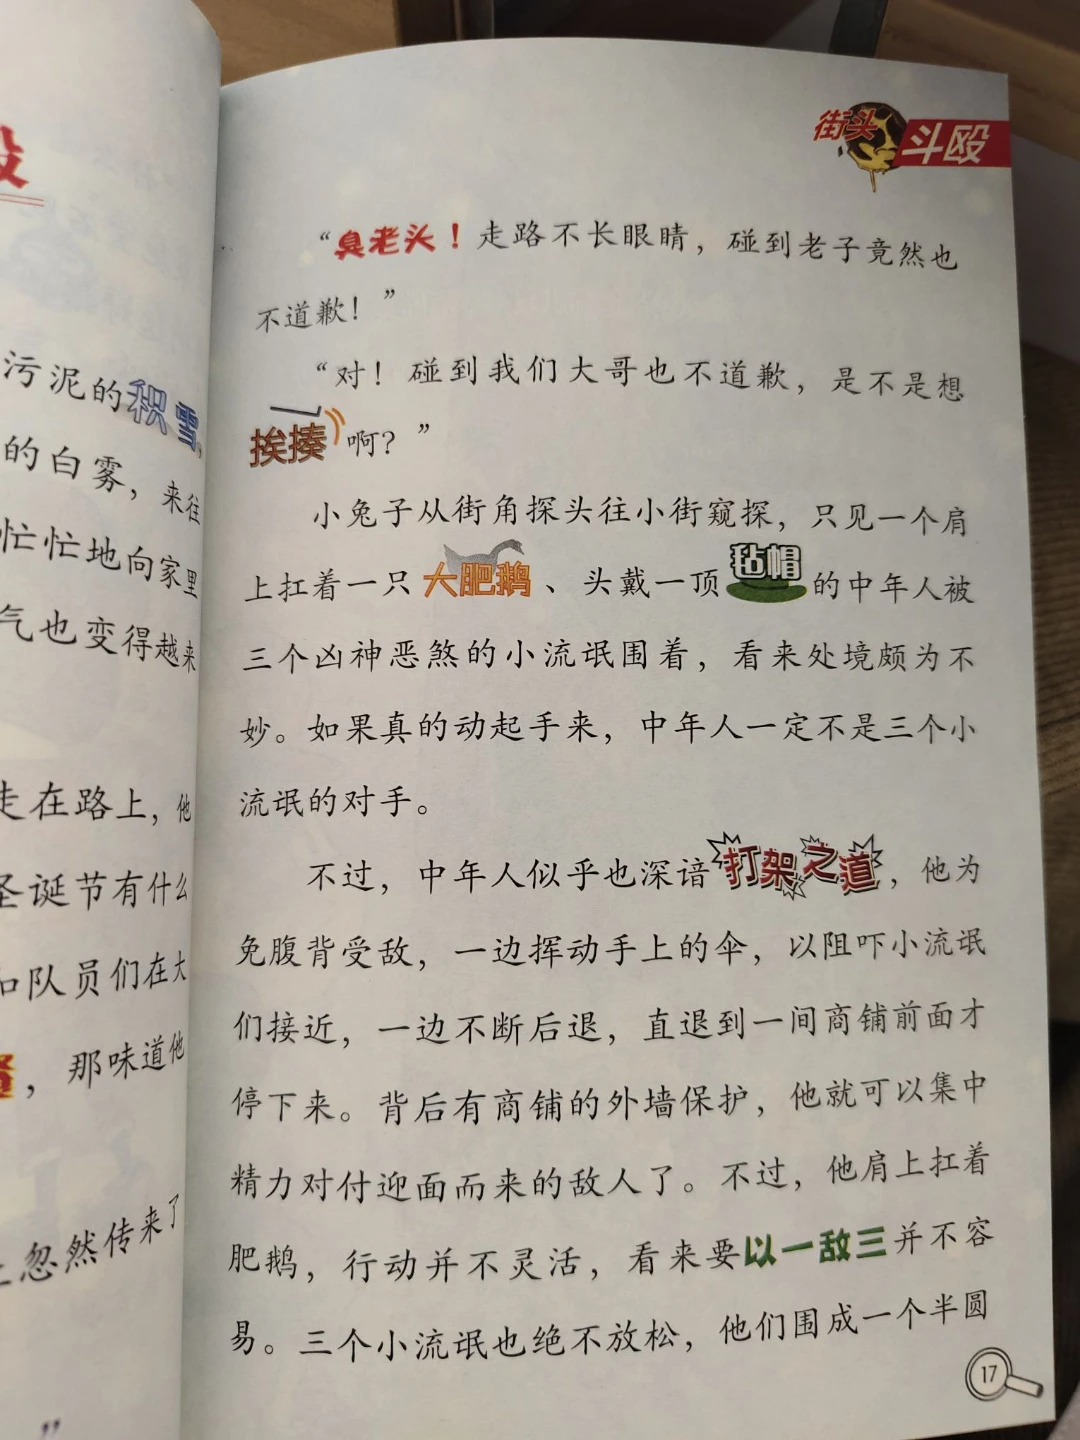 污泥的积雪，
的白雾，来往
忙忙地向家里
气也变得越来
走在路上，他
圣诞节有什么
和队员们在大
，那味道他
忽然传来了
”
街头斗殴
“臭老头！走路不长眼睛，碰到老子竟然也
不道歉！”
“对！碰到我们大哥也不道歉，是不是想
挨揍啊？”
小兔子从街角探头往小街窥探，只见一个肩
上扛着一只大肥鹅、头戴一顶毡帽的中年人被
三个凶神恶煞的小流氓围着，看来处境颇为不
妙。如果真的动起手来，中年人一定不是三个小
流氓的对手。
不过，中年人似乎也深谙打架之道，他为
免腹背受敌，一边挥动手上的伞，以阻吓小流氓
们接近，一边不断后退，直退到一间商铺前面才
停下来。背后有商铺的外墙保护，他就可以集中
精力对付迎面而来的敌人了。不过，他肩上扛着
肥鹅，行动并不灵活，看来要以一敌三并不容
易。三个小流氓也绝不放松，他们围成一个半圆
17